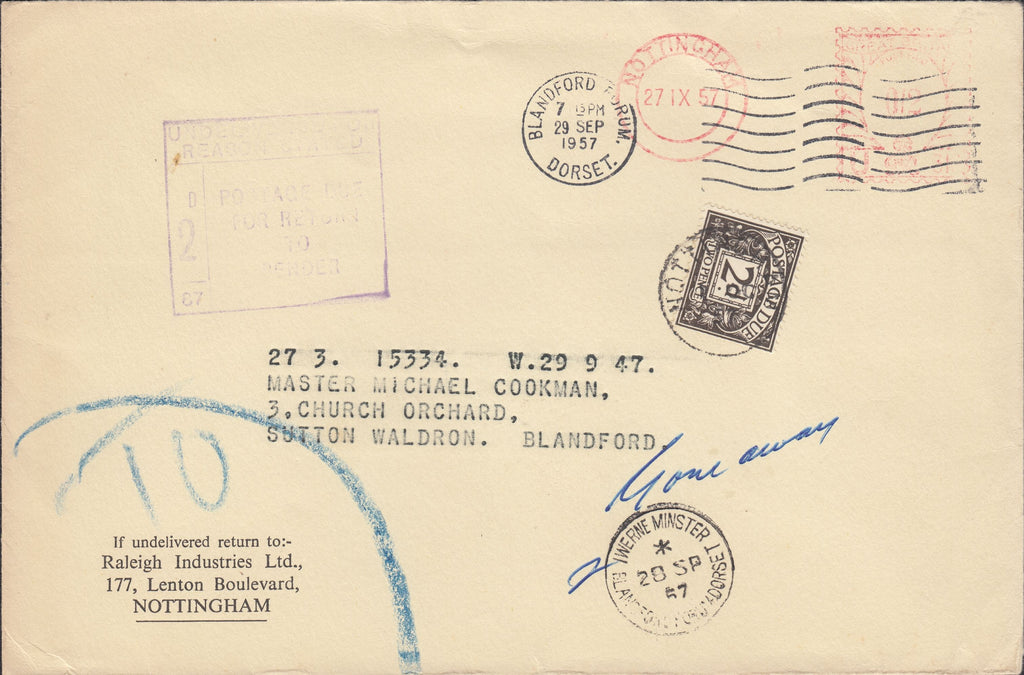 NOTTINGHAM
27 IX 57
BLANDFORD FORUM.
7 15PM
29 SEP
1957
DORSET.
REASON
D
2
POSTAGE DUE
FOR RETURN
TO
SENDER
67
POSTAGE DUE
2d
TWO PENCE
NOTT
27 3. 15334. W.29 9 47.
MASTER MICHAEL COOKMAN,
3,CHURCH ORCHARD,
SUTTON WALDRON. BLANDFORD.
Gone away
TO
IWERNE MINSTER
*
28 SP
57
BLANDFORD DORSET
If undelivered return to:-
Raleigh Industries Ltd.,
177, Lenton Boulevard,
NOTTINGHAM